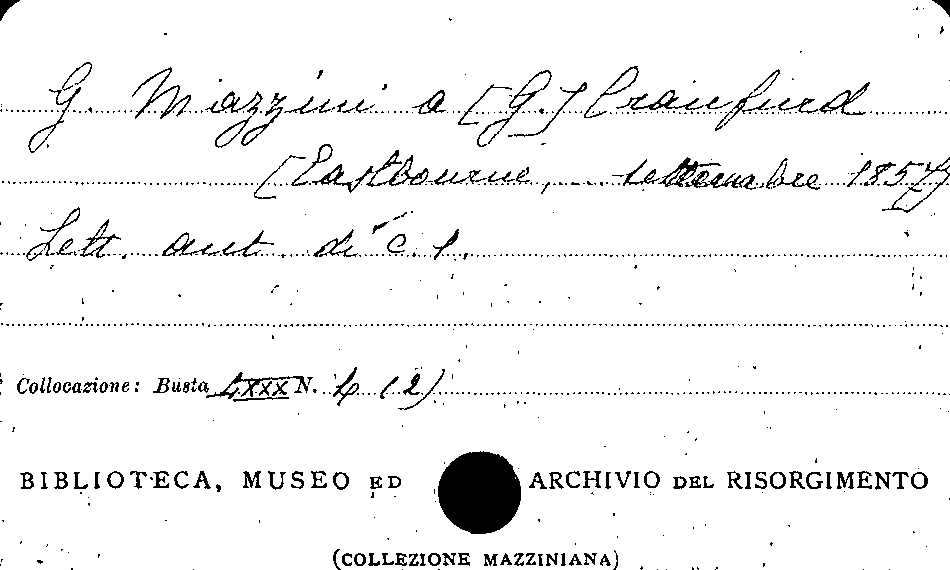 G. Mazzini a [G.] Craufurd
[Eastbourne, ... settembre 1857]
Lett. aut. di c. 1.
Collocazione: Busta LXXX N. 4 (2)
BIBLIOTECA, MUSEO ED ARCHIVIO DEL RISORGIMENTO
(COLLEZIONE MAZZINIANA)